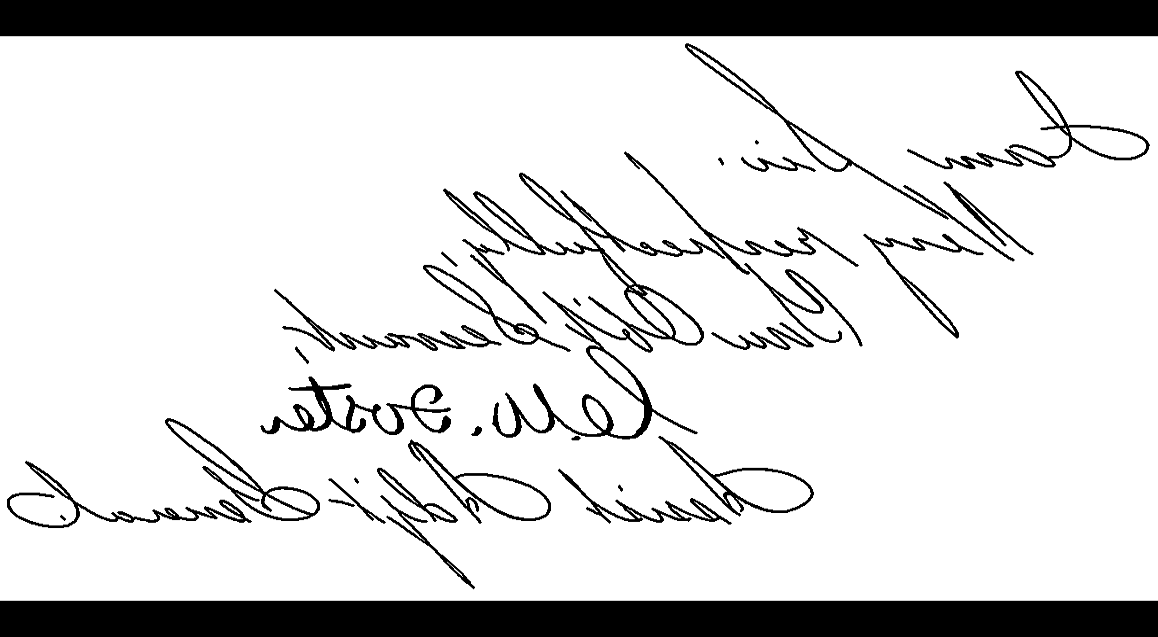 I am, Sir,
Very respectfully,
Your Obdt Servant,
C.W. Foster
Assist Adjt General.